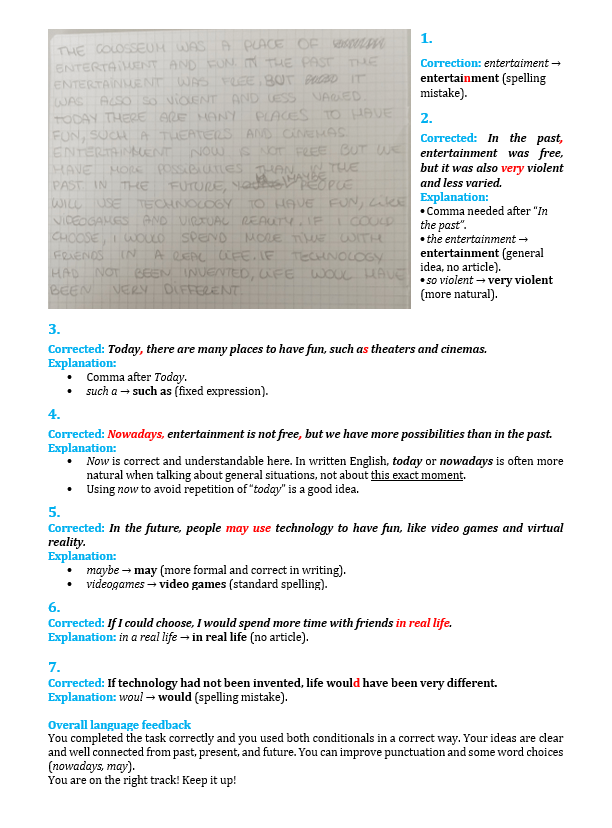 THE COLOSSEUM WAS A PLACE OF
ENTERTAIMENT AND FUN IN THE PAST THE
ENTERTAINMENT WAS FREE, BUT IT
WAS ALSO SO VIOLENT AND LESS VARIED.
TODAY THERE ARE MANY PLACES TO HAVE
FUN, SUCH A THEATERS AND CINEMAS.
ENTERTAINMENT NOW IS NOT FREE BUT WE
HAVE MORE POSSIBILITIES THAN IN THE
PAST IN THE FUTURE, MAYBE PEOPLE
WILL USE TECHNOLOGY TO HAVE FUN, LIKE
VIDEOGAMES AND VIRTUAL REALITY. IF I COULD
CHOOSE, I WOULD SPEND MORE TIME WITH
FRIENDS IN A REAL LIFE. IF TECHNOLOGY
HAD NOT BEEN INVENTED, LIFE WOUL HAVE
BEEN VERY DIFFERENT.
1.
Correction: entertaiment →
entertainment (spelling
mistake).
2.
Corrected: In the past,
entertainment was free,
but it was also very violent
and less varied.
Explanation:
• Comma needed after “In
the past”.
• the entertainment →
entertainment (general
idea, no article).
• so violent → very violent
(more natural).
3.
Corrected: Today, there are many places to have fun, such as theaters and cinemas.
Explanation:
• Comma after Today.
• such a → such as (fixed expression).
4.
Corrected: Nowadays, entertainment is not free, but we have more possibilities than in the past.
Explanation:
• Now is correct and understandable here. In written English, today or nowadays is often more
natural when talking about general situations, not about this exact moment.
• Using now to avoid repetition of “today” is a good idea.
5.
Corrected: In the future, people may use technology to have fun, like video games and virtual
reality.
Explanation:
• maybe → may (more formal and correct in writing).
• videogames → video games (standard spelling).
6.
Corrected: If I could choose, I would spend more time with friends in real life.
Explanation: in a real life → in real life (no article).
7.
Corrected: If technology had not been invented, life would have been very different.
Explanation: woul → would (spelling mistake).
Overall language feedback
You completed the task correctly and you used both conditionals in a correct way. Your ideas are clear
and well connected from past, present, and future. You can improve punctuation and some word choices
(nowadays, may).
You are on the right track! Keep it up!